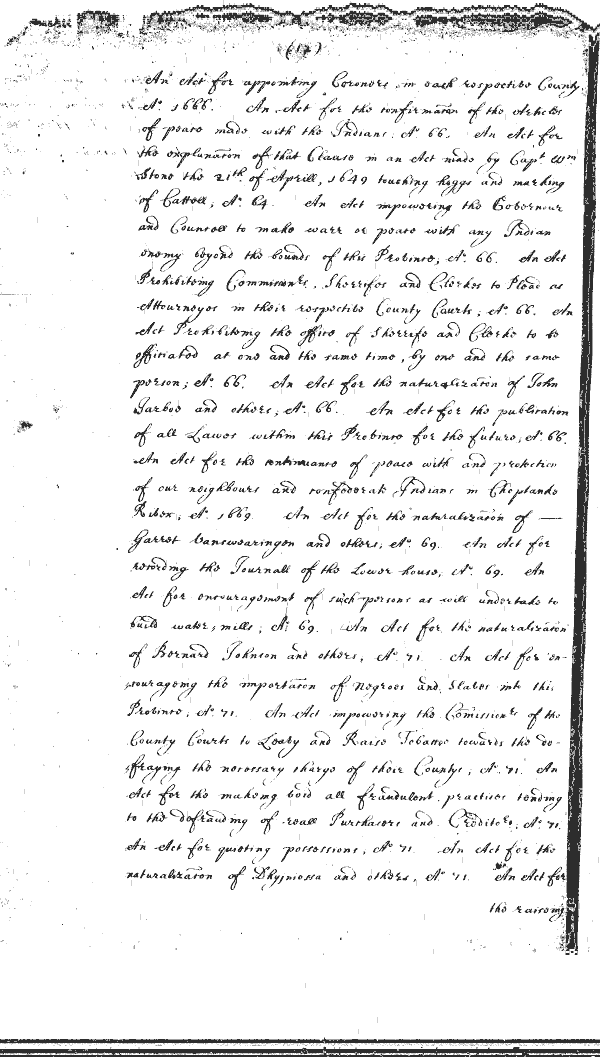 (17)
An Act for appointing Coroners in each respective County
Ao 1666. An Act for the confirmačon of the Articles
of peace made with the Indians Ao 66. An Act for
the explanačon of that Clause in an Act made by Capt Wm
Stone the 21th of Aprill, 1649 touching hoggs and marking
of Cattell; Ao 64. An Act impowering the Governour
and Councell to make warr or peace with any Indian
enemy beyond the bounds of this Province; Ao 66. An Act
Prohibiteing Commissionrs, Sherriffes and Clerkes to Plead as
Attourneyes in their respective County Courts; Ao 66. An
Act Prohibiteing the office of Sherriffe and Clerke to be
officiated at one and the same time, by one and the same
person; Ao 66. An Act for the naturalizačon of John
Jarboe and others; Ao 66. An Act for the publication
of all Lawes within this Province for the future; Ao 66.
An Act for the continuance of peace with and protection
of our neighbours and confederate Indians in Choptanke
River; Ao 1669. An Act for the naturalizačon of —
Garret Vansweazingen and others; Ao 69. An Act for
recording the Journall of the Lower house; Ao 69. An
Act for encouragement of such persons as will undertake to
build water, mills; Ao 69. An Act for the naturalizačon
of Bernard Johnson and others, Ao 71 An Act for en-
couraging the importačon of Negroes and Slaves into this
Province; Ao 71. An Act impowering the Comissionrs of the
County Courts to Leavy and Raise Tobacco towards the de-
fraying the necessary charge of their Countys; Ao 71. An
Act for the makeing void all fraudulent practices tending
to the defrauding of reall Purchasers and Creditors; Ao 71.
An Act for quieting possessions, Ao 71 An Act for the
naturalizačon of and others, Ao 71. An Act for
the raiseing